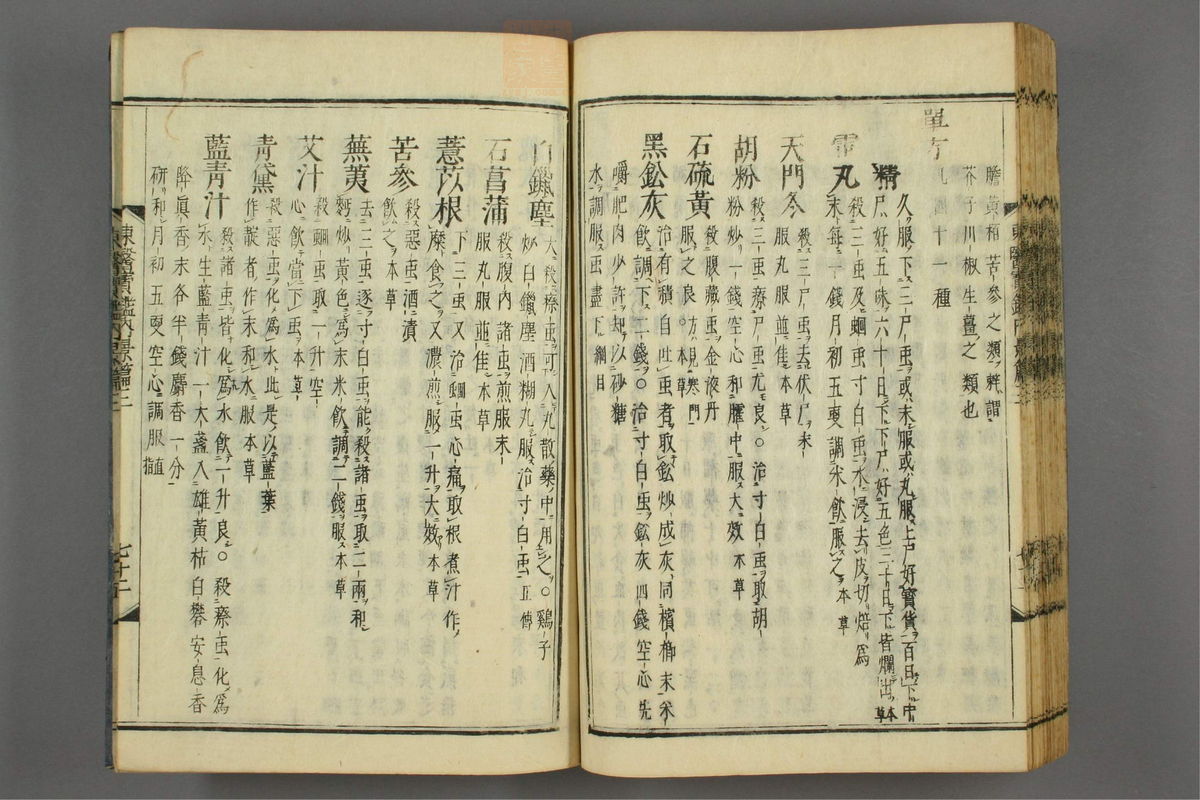 膽黃 苦參之類 謂
芥子川椒生薑之類也
單方 凡 十一種
精 久服下三尸䖝或末服或丸服上尸好寶貨百日下中
尸好五味六十日下下尸好五色三十日下皆爛出本草
丸 殺三䖝及蛔䖝寸白䖝水浸去皮切焙爲
末每一錢月初五更調米飮服之本草
天門冬 殺三尸䖝去伏尸末
服丸服並佳本草
胡粉 殺三䖝療尸䖝尤良○治寸白䖝取胡
粉炒一錢空心和臛中服大效本草
石硫黃 殺腹藏䖝金液丹
服之良方見寒門本草
黑鉛灰 治有積自吐䖝者取鉛炒成灰同檳榔末米
飮調下二錢○治寸白䖝鉛灰四錢空心先
嚼肥肉少許却以砂糖
水調服䖝盡下綱目
白鑞塵 大殺瘵䖝可入丸散藥中用之○鷄子
炒白鑞塵酒糊丸服治寸白䖝正傳
石菖蒲 殺腹內諸䖝煎服末
服丸服並佳本草
薏苡根 下三䖝又治蛔䖝心痛取根煮汁作
糜食之又濃煎服一升大效本草
苦參 殺惡䖝酒漬
飮之本草
蕪荑 去三䖝逐寸白䖝能殺諸䖝取二兩和
麪炒黃色爲末米飮調二錢服本草
艾汁 殺蛔䖝取一升空
心飮當下䖝本草
靑黛 殺惡䖝化爲水此是以藍葉
作靛者作末和水服本草
藍靑汁 殺諸䖝皆化爲水飮一升良○殺瘵䖝化爲
水生藍靑汁一大盞入雄黃枯白礬安息香
降眞香末各半錢麝香一分
硏和月初五更空心調服 直
東醫寶鑑內景篇三
七十二